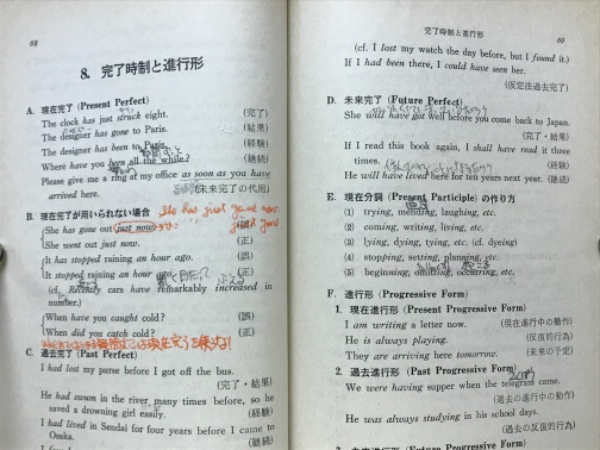 68
8. 完了時制と進行形
A. 現在完了 (Present Perfect)
The clock has just struck eight. (完了)
The designer has gone to Paris. (結果)
The designer has been to Paris. (経験)
Where have you been all the while? (継続)
Please give me a ring at my office as soon as you have
arrived here. (未来完了の代用)
B. 現在完了が用いられない場合 She has just gone now
She has gone out just now. (誤)
She went out just now. (正)
It has stopped raining an hour ago. (誤)
It stopped raining an hour ago. (正)
(cf. Recently cars have remarkably increased in
number.)
When have you caught cold? (誤)
When did you catch cold? (正)
C. 過去完了 (Past Perfect)
I had lost my purse before I got off the bus.
(完了・結果)
He had swum in the river many times before, so he
saved a drowning girl easily. (経験)
I had lived in Sendai for four years before I came to
Osaka. (継続)
完了時制と進行形
69
(cf. I lost my watch the day before, but I found it.)
If I had been there, I could have seen her.
(仮定法過去完了)
D. 未来完了 (Future Perfect)
She will have got well before you come back to Japan.
(完了・結果)
If I read this book again, I shall have read it three
times. (経験)
He will have lived here for ten years next year. (継続)
E. 現在分詞 (Present Participle) の作り方
(1) trying, mending, laughing, etc.
(2) coming, writing, living, etc.
(3) lying, dying, tying, etc. (cf. dyeing)
(4) stopping, setting, planning, etc.
(5) beginning, omitting, occurring, etc.
F. 進行形 (Progressive Form)
1. 現在進行形 (Present Progressive Form)
I am writing a letter now. (現在進行中の動作)
He is always playing. (反復的行為)
They are arriving here tomorrow. (未来の予定)
2. 過去進行形 (Past Progressive Form)
We were having supper when the telegram came.
(過去の進行中の動作)
He was always studying in his school days.
(過去の反復的行為)